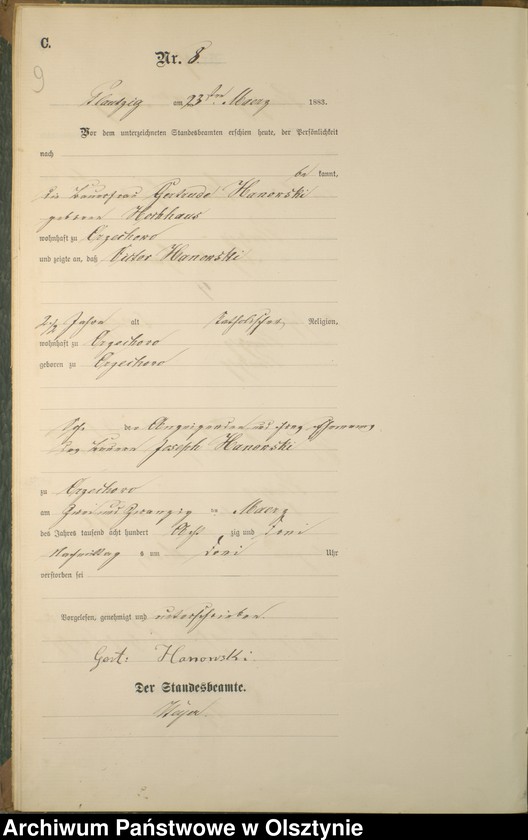 C.
9
Nr. 8
Plautzig am 23ten Maerz 1883.
Vor dem unterzeichneten Standesbeamten erschien heute, der Persönlichkeit
nach
be kannt,
die Bauerfrau Gertrude Hanowski
geborene Hochhaus
wohnhaft zu Orzechowo
und zeigte an, daß Victor Hanowski
2 1/2 Jahre alt katholischer Religion,
wohnhaft zu Orzechowo
geboren zu Orzechowo
Sohn der Anzeigenden und ihres Ehemannes
des Bauern Joseph Hanowski
zu Orzechowo
am zwei und zwanzig ten Maerz
des Jahres tausend acht hundert acht zig und drei
Nachmittag s um drei Uhr
verstorben sei
Vorgelesen, genehmigt und unterschrieben
Gert: Hanowski
Der Standesbeamte.
Archiwum Państwowe w Olsztynie